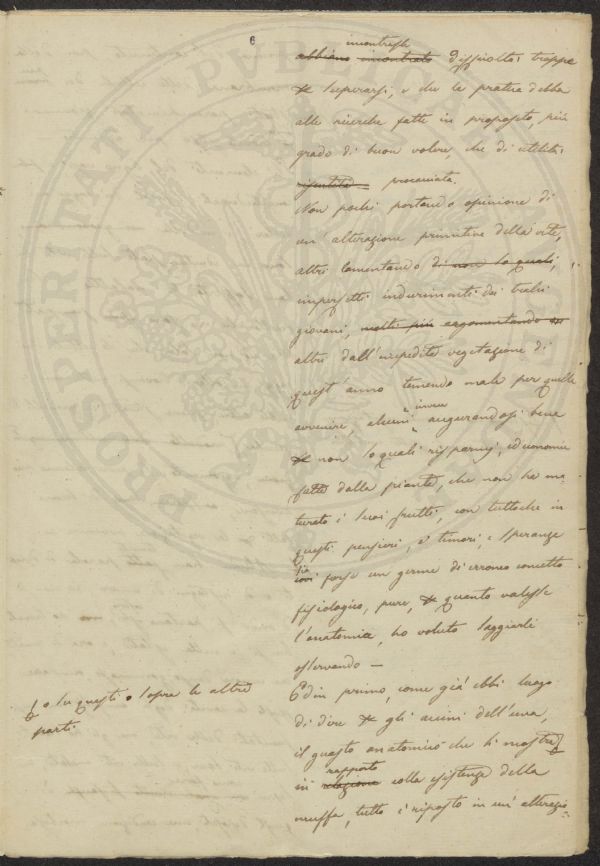 6
incontrasse
abbiano incontrato difficoltà troppe
a superarsi, e che la pratica debba
alle ricerche fatte in proposito, più
grado di buon volere, che di utilità
risentita procacciata.
Non pochi portando opinione di
un'alterazione primitiva della vite,
altri lamentando di non so quali,
imperfetti indurimenti dei tralci
giovani, molti più argomentando
altri dall'impedita vegetazione di
quest'anno temendo male per quelle
avvenire, alcuni invece augurandosi bene
non so quali risparmj, ed economie
fatte dalla pianta, che non ha ma-
turato i suoi frutti, con tuttochè in
questi pensieri, e timori, e speranze
sia
covi forse un germe di erroneo concetto
fisiologico, pure, quanto valesse
l'anatomia, ho voluto saggiarli
osservando —
Ed in primo, come già ebbi luogo
di dire gli acini dell'uva,
il guasto anatomico che si mostra
rapporto
in relazione colla esistenza della
muffa, tutto è riposto in un'alterazio-
o su questi o sopra le altre
parti
PROSPERITATI PUBLICAE